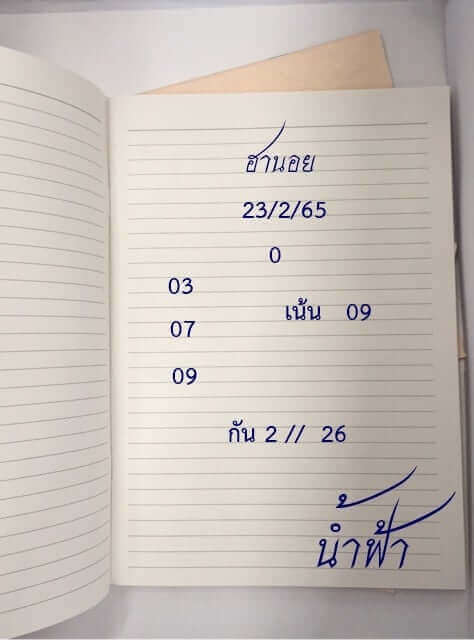 ฮานอย
23/2/65
0
03
เน้น 09
07
09
กัน 2 // 26
น้ำฟ้า